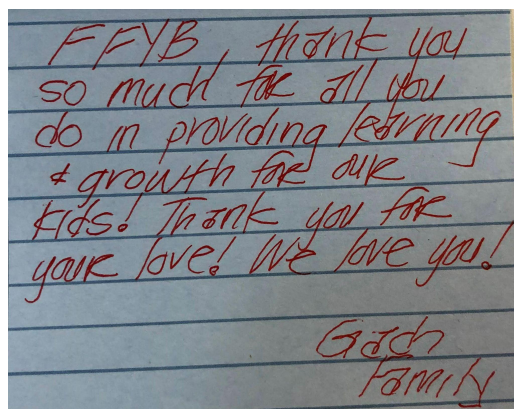 FFYB, thank you
so much for all you
do in providing learning
& growth for our
kids! Thank you for
your love! We love you!
Gach
Family